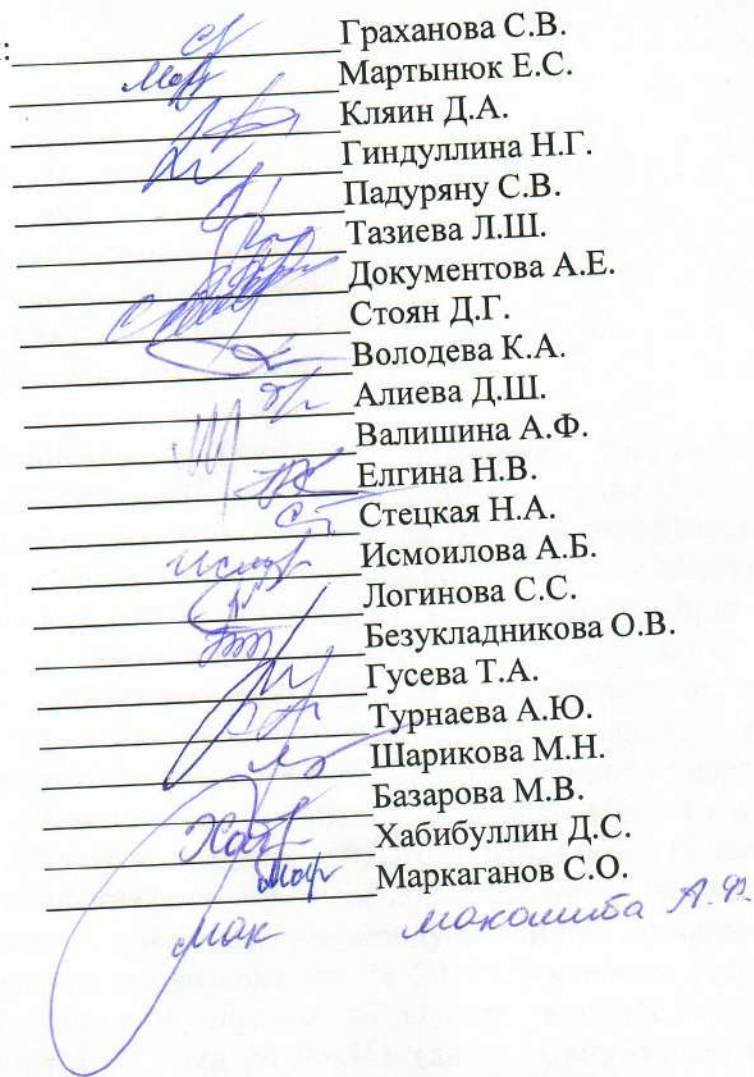 : Граханова С.В.
Мартынюк Е.С.
Кляин Д.А.
Гиндуллина Н.Г.
Падуряну С.В.
Тазиева Л.Ш.
Документова А.Е.
Стоян Д.Г.
Володева К.А.
Алиева Д.Ш.
Валишина А.Ф.
Елгина Н.В.
Стецкая Н.А.
Исмоилова А.Б.
Логинова С.С.
Безукладникова О.В.
Гусева Т.А.
Турнаева А.Ю.
Шарикова М.Н.
Базарова М.В.
Хабибуллин Д.С.
Маркаганов С.О.
Мак А.Ф.